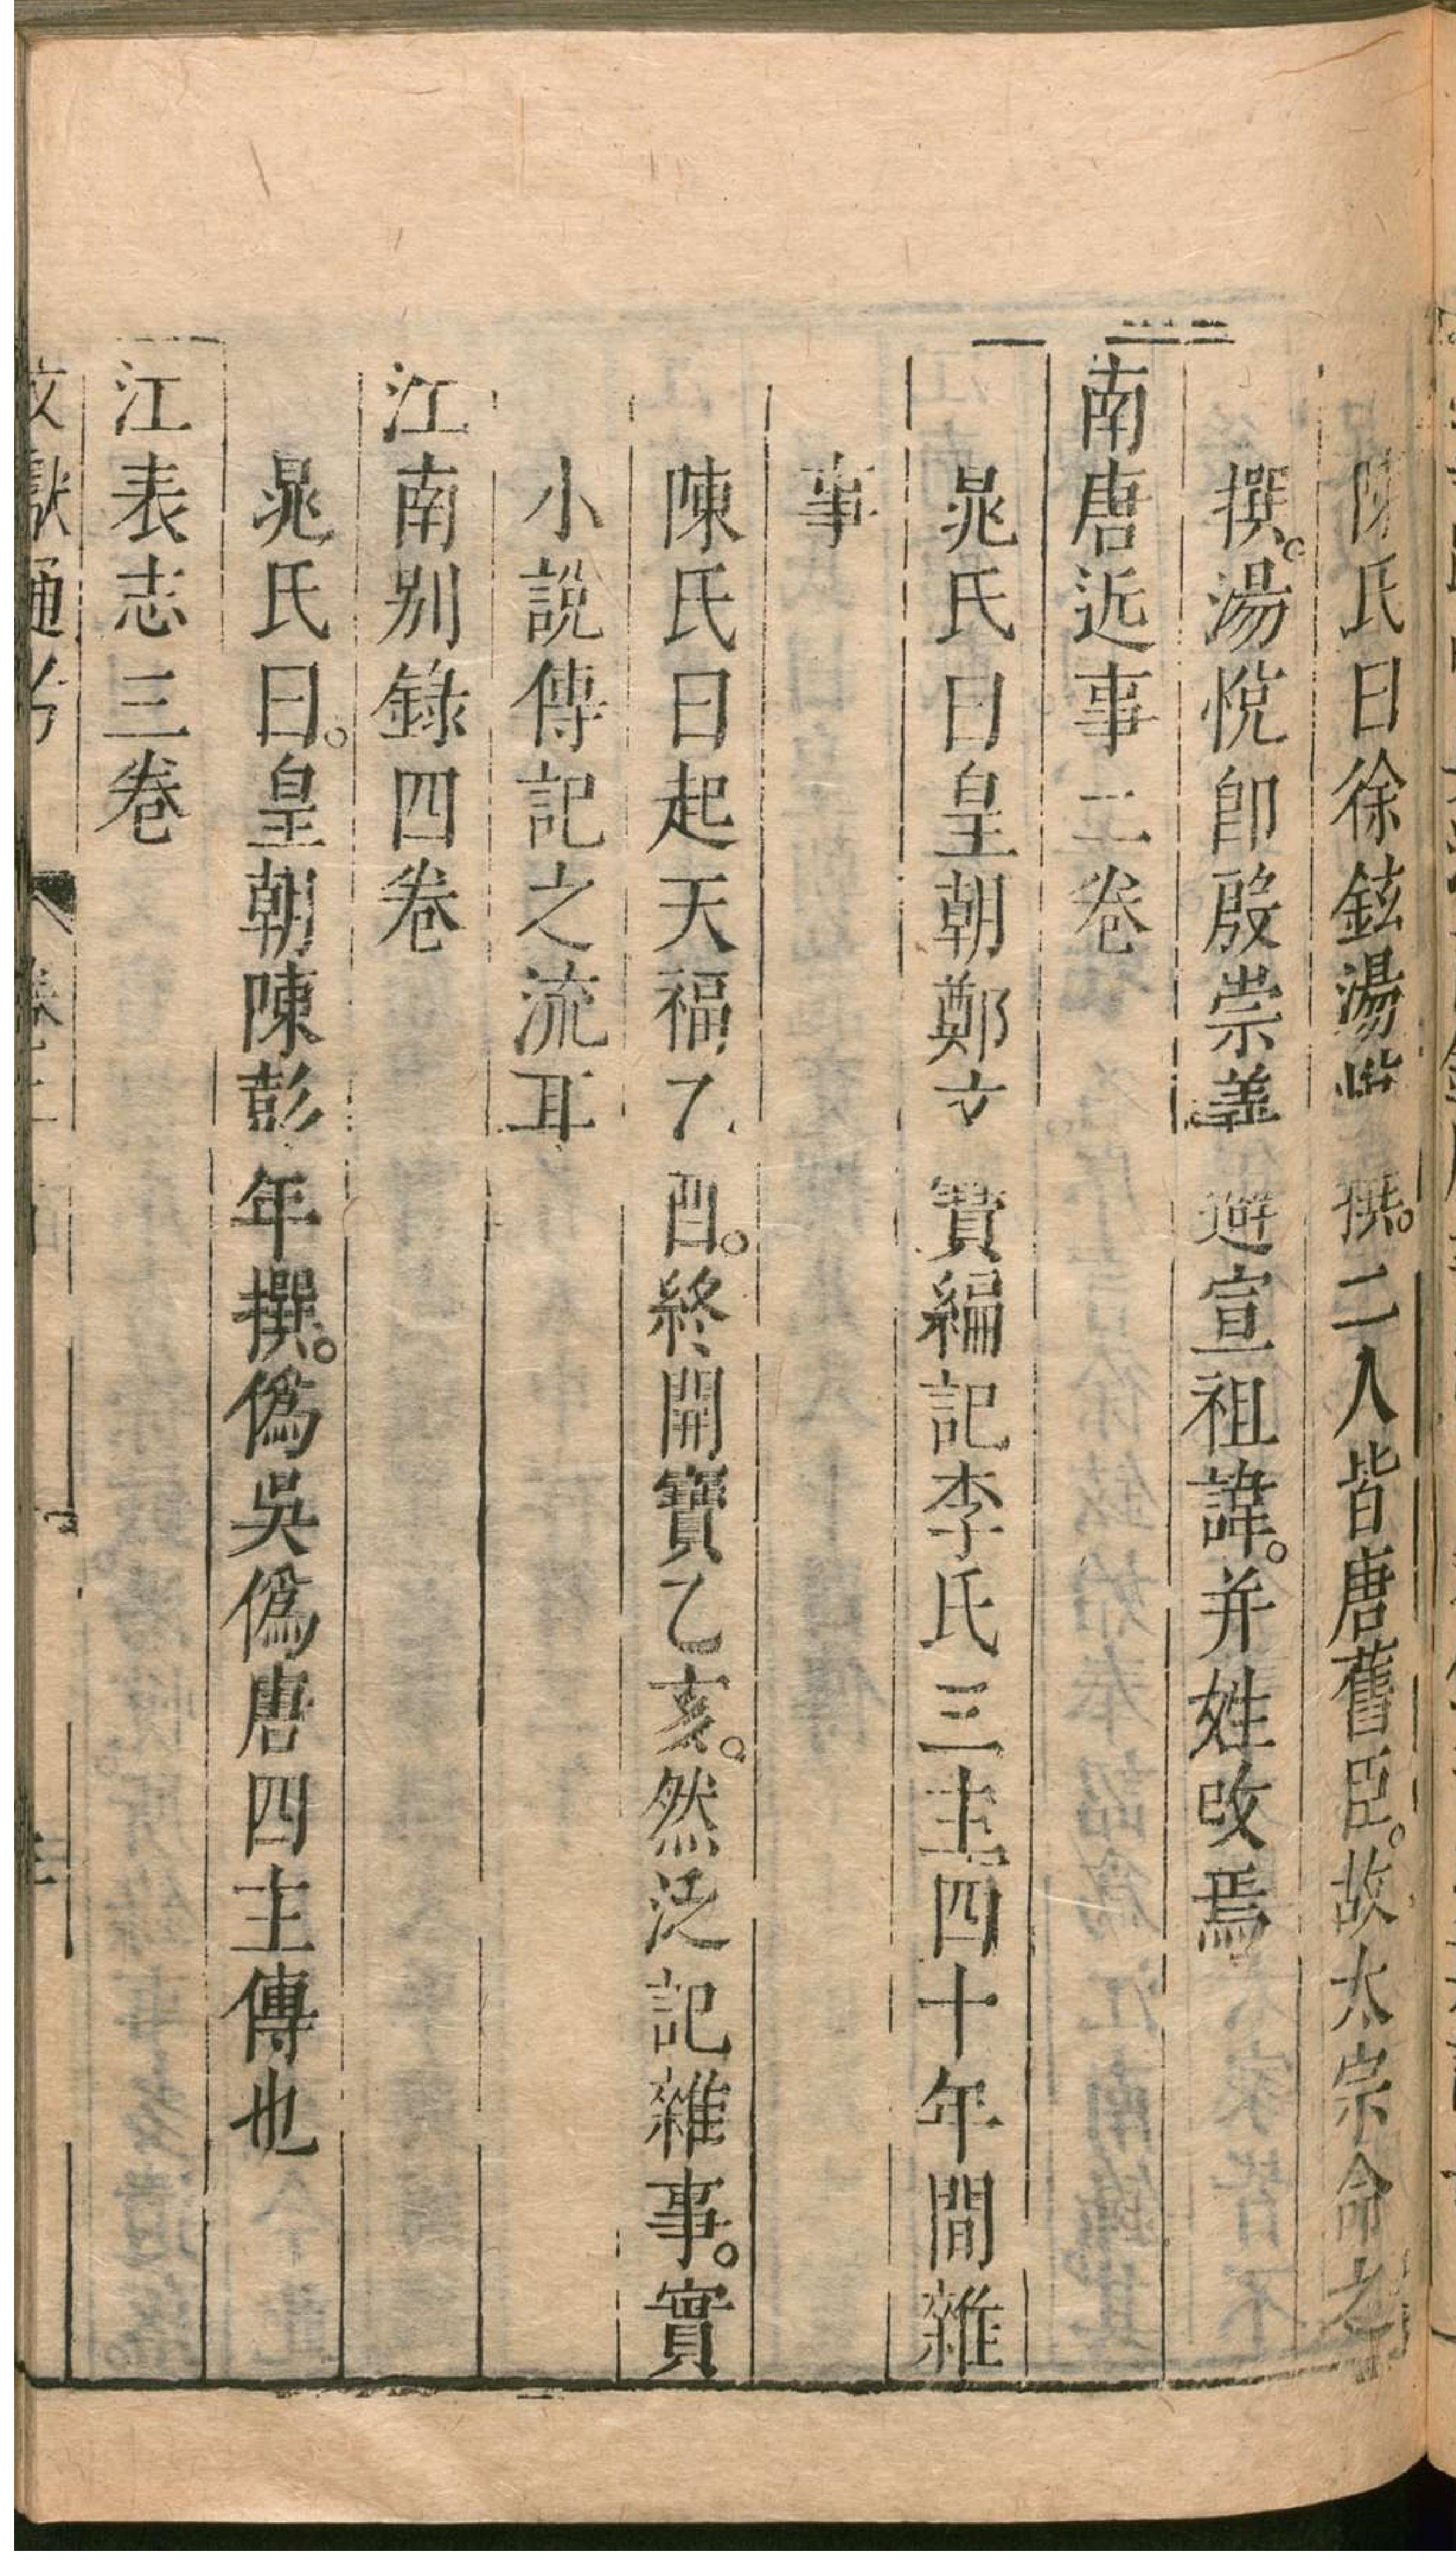 陳氏曰徐鉉湯悅撰。二人皆唐舊臣。故太宗命之
撰。湯悅即殷崇義避宣祖諱。并姓改焉
南唐近事二卷
晁氏曰皇朝鄭文寶編記李氏三主四十年間雜
事
陳氏曰起天福乙酉。終開寶乙亥。然泛記雜事。實
小說傳記之流耳
江南别錄四卷
晁氏曰。皇朝陳彭年撰。僞吳僞唐四主傳也
江表志三卷
文獻通考